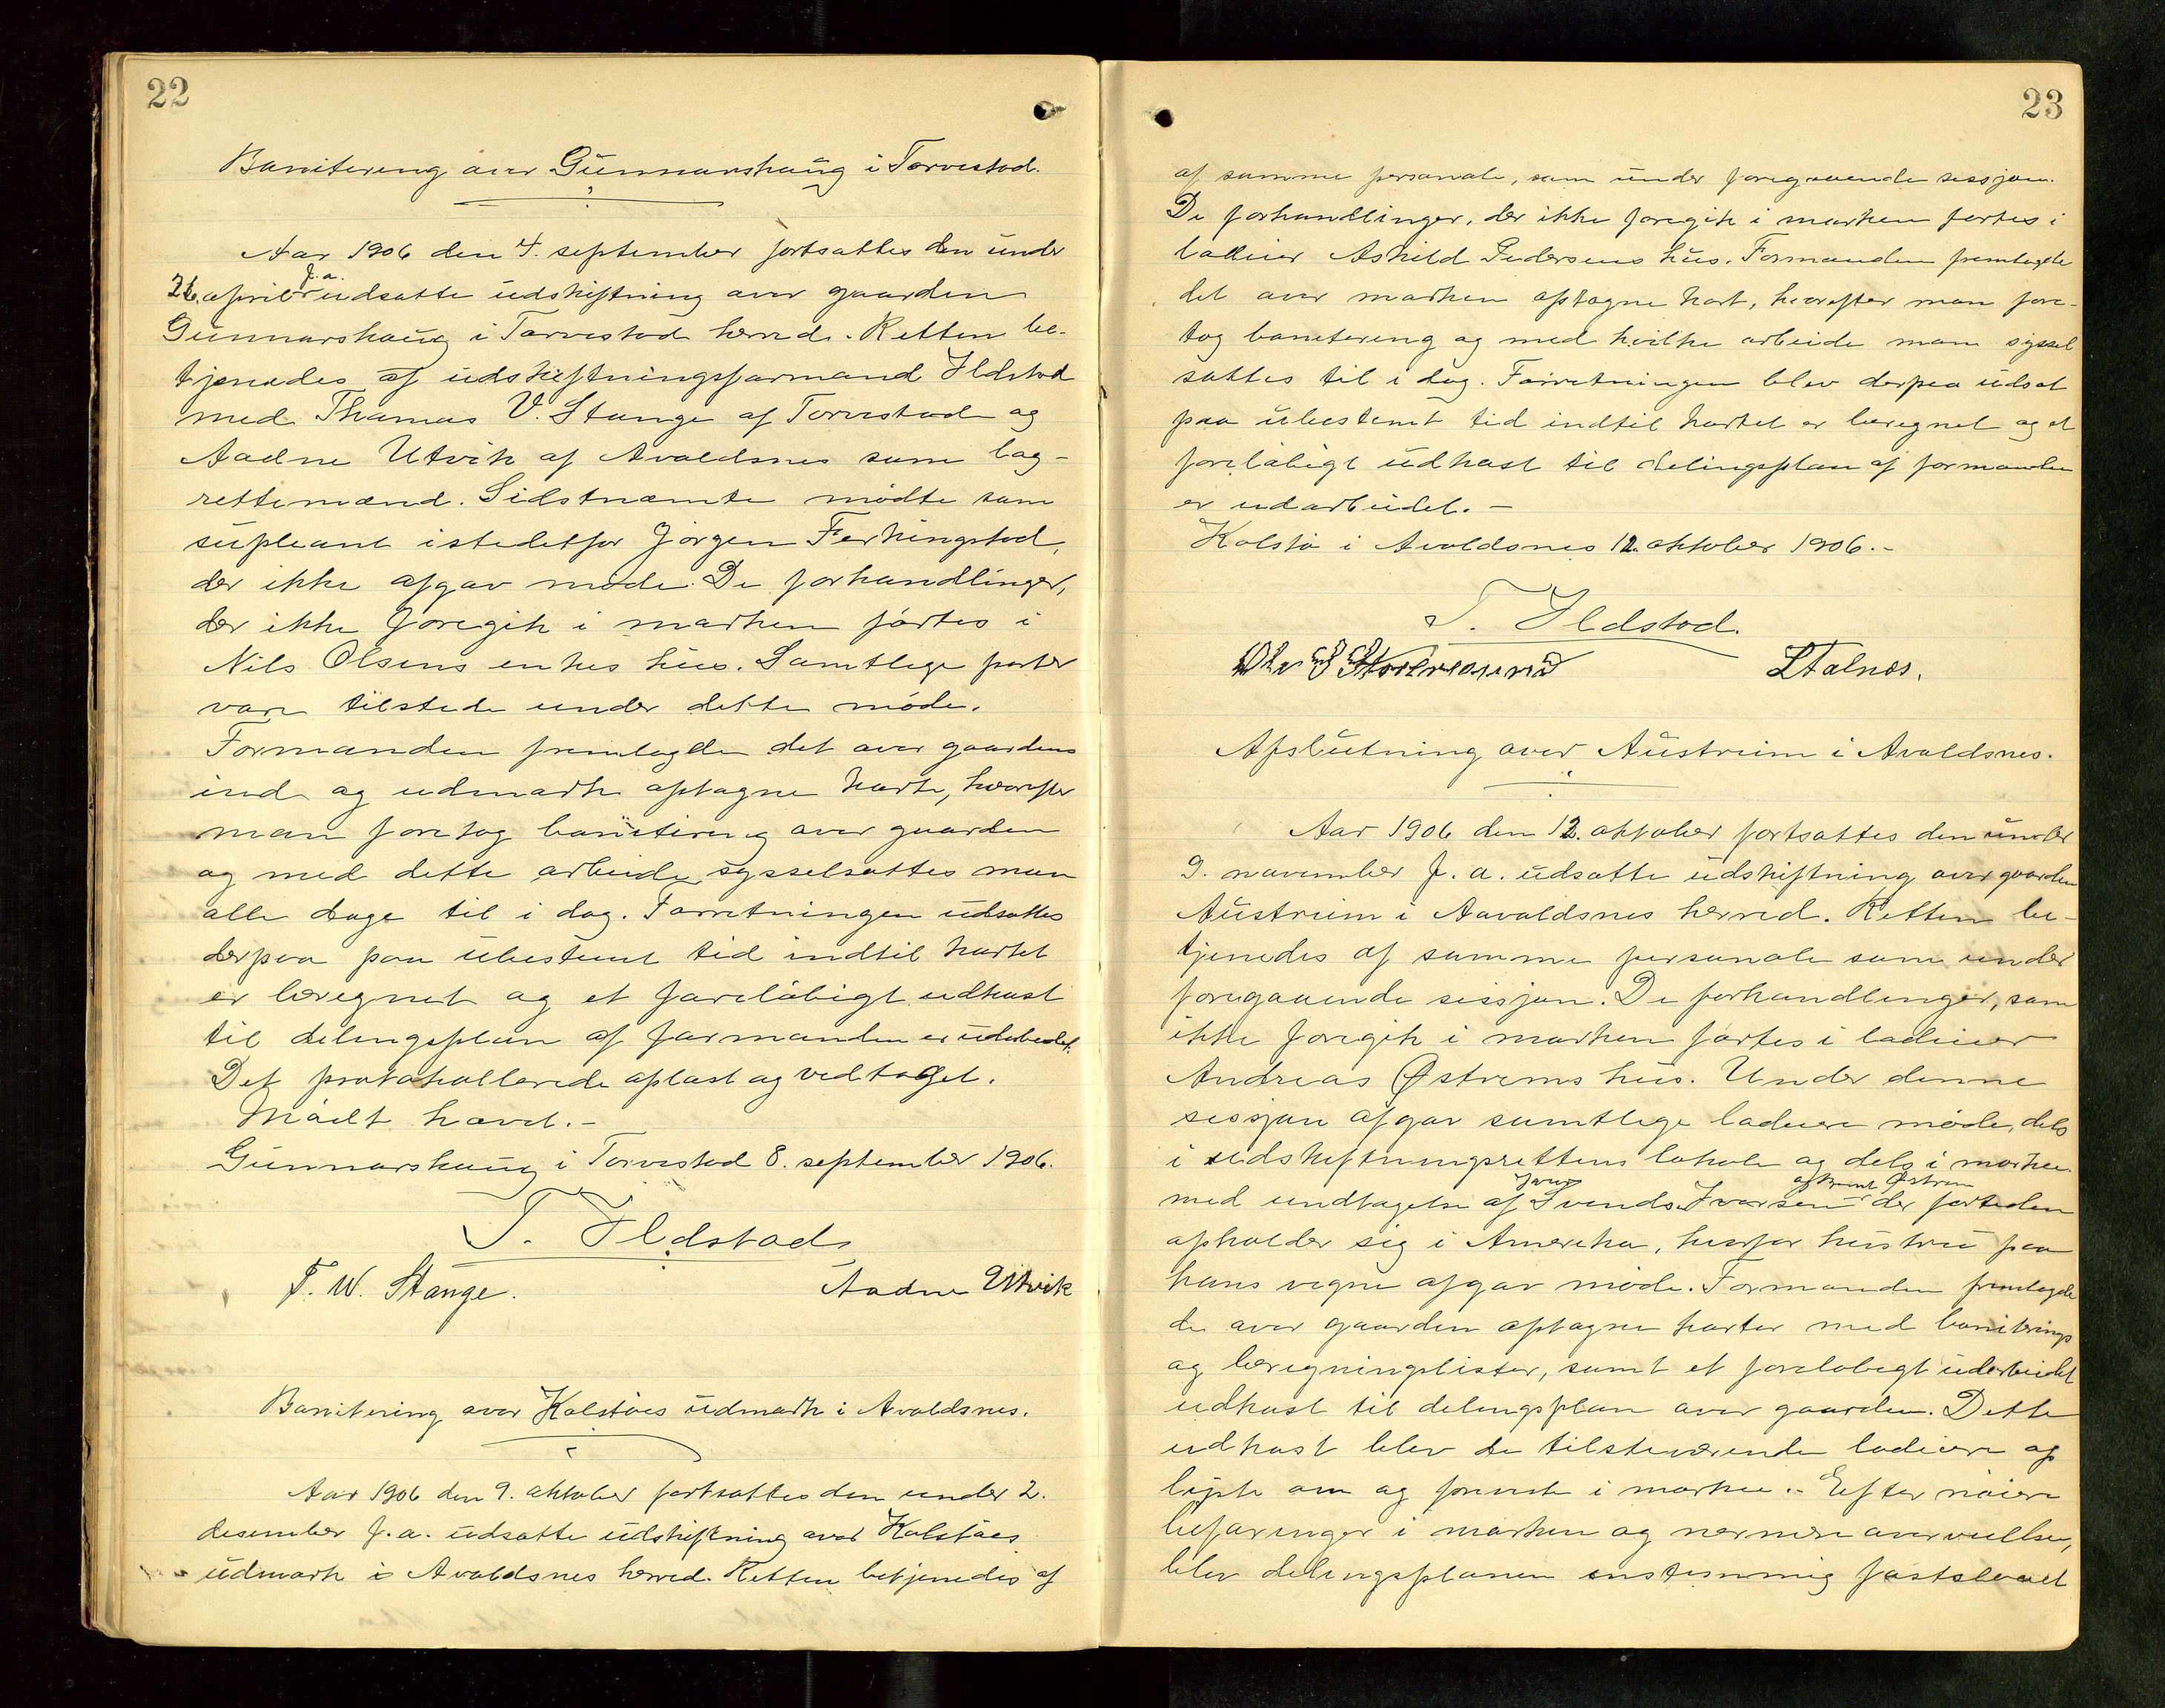 22
Bonitering over Gunnarshaug i Torvestad.
Aar 1906 den 4. september fortsattes den under
f.a.
26. april udsatte udskiftning over gaarden
Gunnarshaug i Torvestad herred. Retten be-
tjenedes af udskiftningsformand Ildstad
med Thomas V. Stange af Torvestad og
Aadne Utvik af Avaldsnes som lag-
rettemænd. Sidstnæmte mödte som
supleant istedetfor Jörgen Ferkingstad,
der ikke afgav möde. De forhandlinger,
der ikke foregik i marken förtes i
Nils Olsens enkes hus. Samtlige parter
vare tilstede under dette möde.
Formanden fremlagde det over gaardens
ind og udmark optagne kart, hvorefter
man foretog bonitering over gaarden
og med dette arbeide sysselsattes man
alle dage til i dag. Forretningen udsattes
derpaa paa ubestemt tid indtil kartet
er beregnet og et foreløbigt udkast
til delingsplan af formanden er udarbeidet.
Det protokollerede oplæst og vedtaget.
Mödt hævet.-
Gunnarshaug i Torvestad 8. september 1906.
T. Ildstad
T. W. Stange. Aadne Utvik
Bonitering over Kolstöes udmark i Avaldsnes.
Aar 1906 den 9. oktober fortsattes den under 2.
desember f.a. udsatte udskiftning over Kolstöes
udmark i Avaldsnes herred. Retten betjenedes af
23
af samme personale, som under foregaaende sessjon.
De forhandlinger, der ikke foregik i marken førtes i
lodeier Askild Pedersens hus. Formanden fremlagde
det over marken optagne kart, hvorefter man fore-
tog bonitering og med hvilke arbeide man syssel
sattes til i dag. Forretningen blev derpaa udsat
paa ubestemt tid indtil kartet er beregnet og et
foreløbigt udkast til delingsplan af formanden
er udarbeidet.-
Kolstö i Avaldsnes 12. oktober 1906.-
T. Ildstad.
L Falnes.
Afslutning over Austrum i Avaldsnes.
Aar 1906 den 12. oktober fortsattes den under
9. november f.a. udsatte udskiftning over gaarden
Austrum i Aavaldsnes herred. Retten be-
tjenedes af samme personale som under
foregaaende sessjon. De forhandlinger, som
ikke foregik i marken førtes i lodeier
Andreas Østrems hus. Under denne
sessjon afgav samtlige lodeiere møde, dels
i udskiftningsrettens lokale og dels i marken
og Østrem
med undtagelse af Svends Ivarsen der fortiden
opholder sig i Amerika, hvorfor hustru paa
hans vegne afgav möde. Formanden fremlagde
de over gaarden optagne karter med boniterings
og beregningslister, samt et foreløbigt udarbeidet
udkast til delingsplan over gaarden. Dette
udkast blev de tilstedeværende lodeiere op
lyste om og foreviste i marken.- Efter nöiere
befaringer i marken og nærmere overveielser,
blev delingsplanen enstemmig fastslaaet